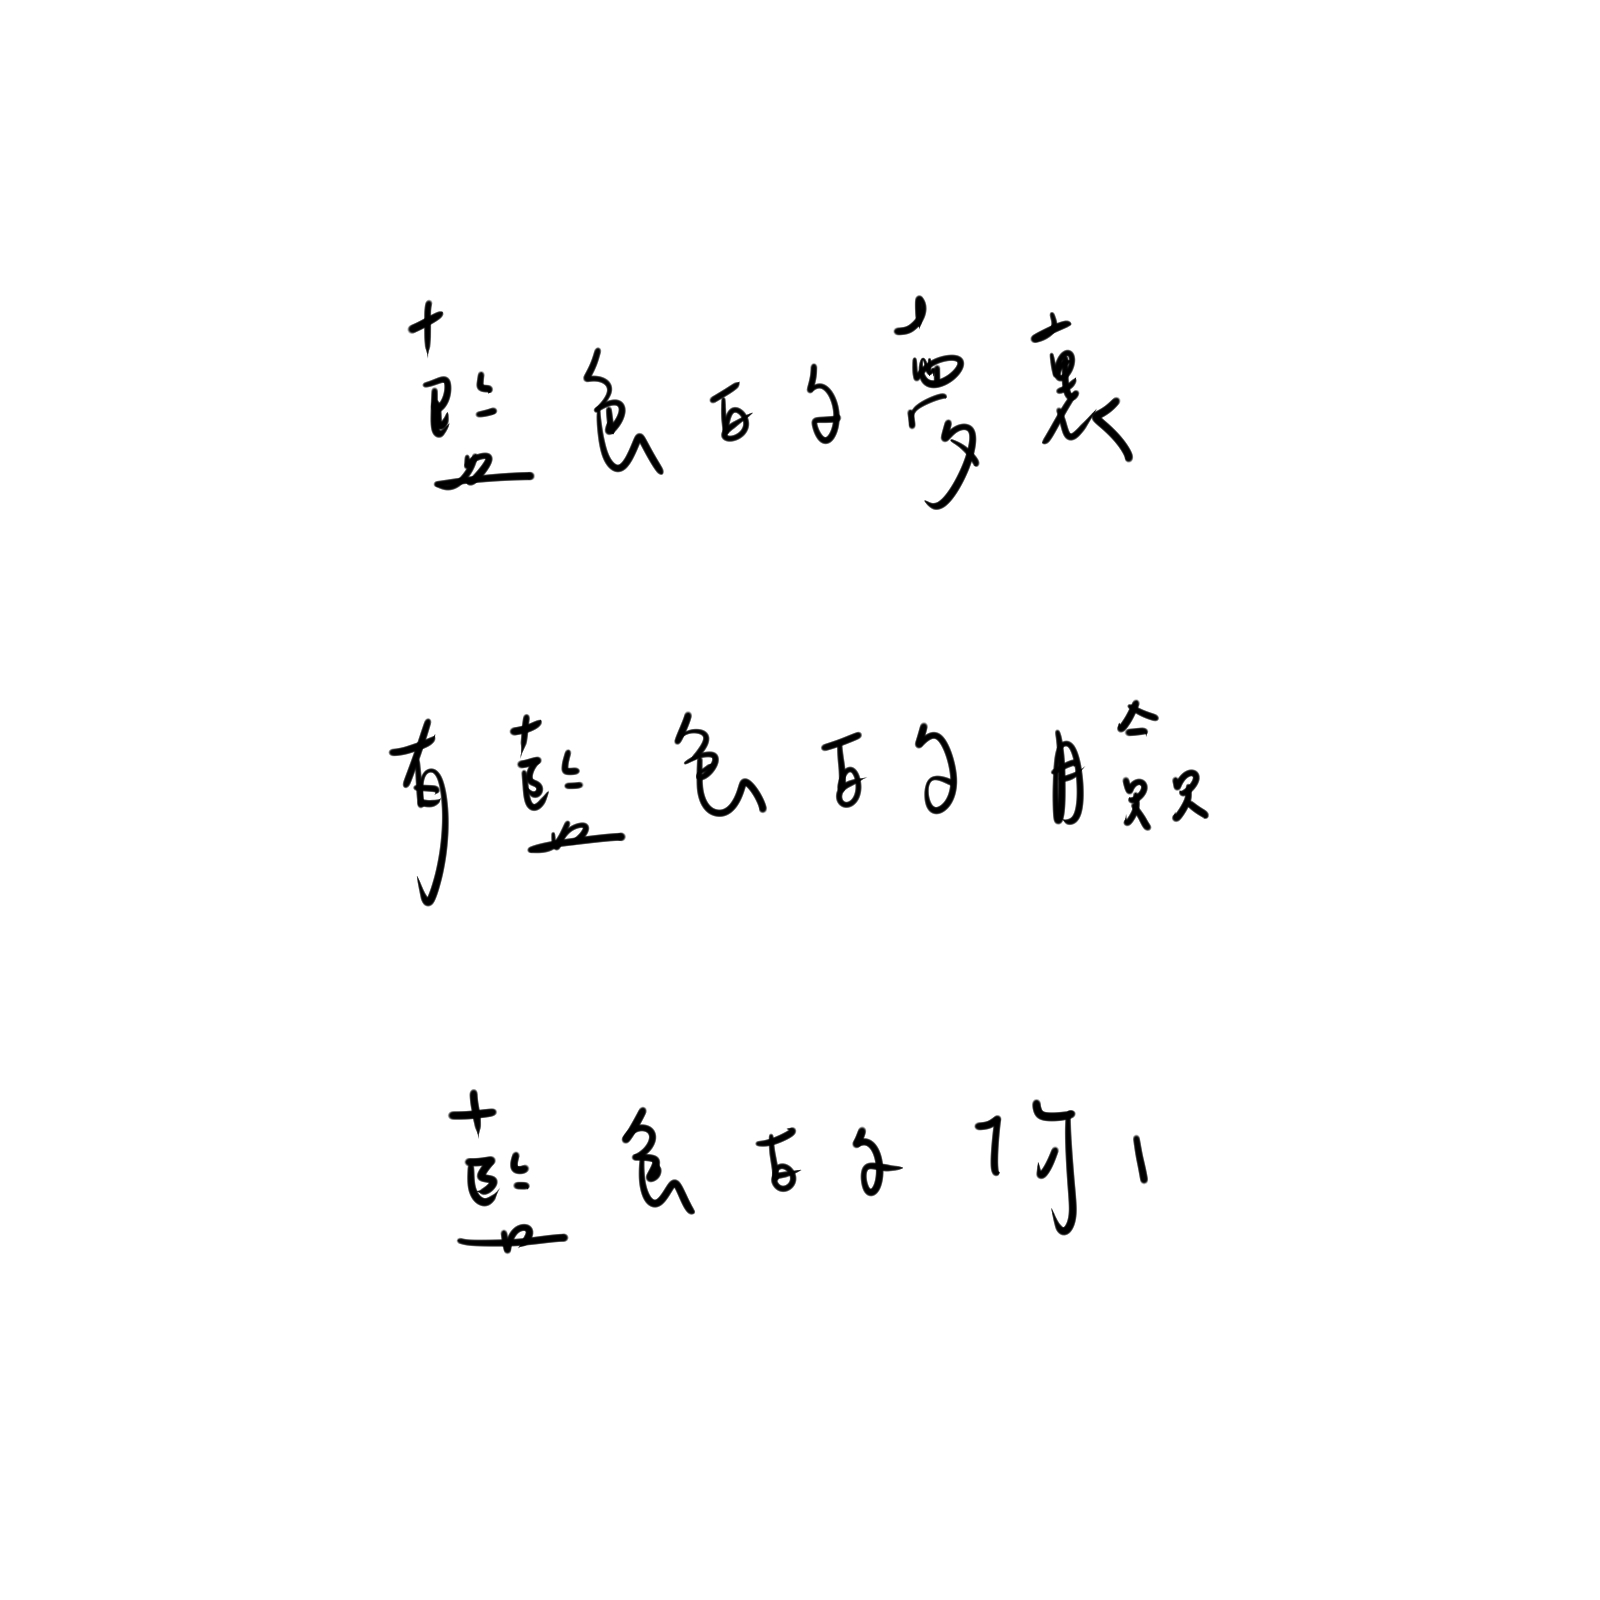 藍色的夢裏
有藍色的臉
藍色的你